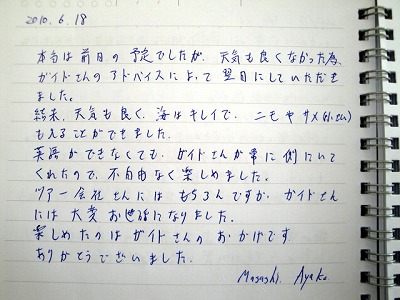 2010.6.18
本当は前日の予定でしたが、天気も良くなかった為、
ガイドさんのアドバイスによって翌日にしていただき
ました。
結果、天気も良く、海はキレイで、ニモやサメ(小さい)
もみることができました。
英語ができなくても、ガイドさんが常に側にいて
くれたので、不自由なく楽しめました。
ツアー会社さんにはもちろんですが、ガイドさん
には大変お世話になりました。
楽しめたのはガイドさんのおかげです。
ありがとうございました。
Masashi. Ayaka.